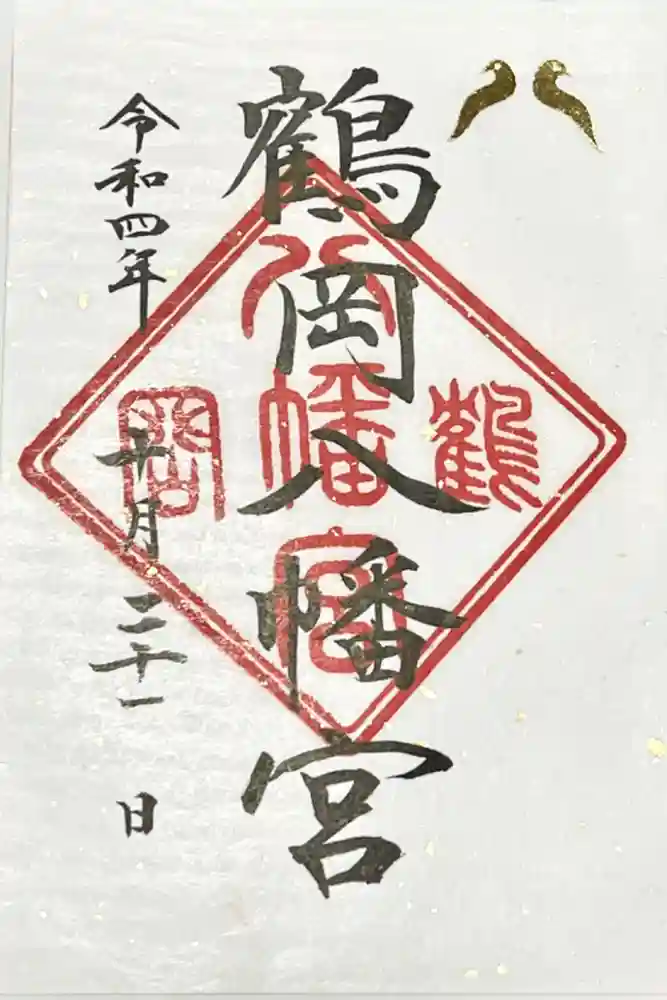 鶴岡八幡宮
鶴
岡
八
幡
宮
令和四年
十月二十一日